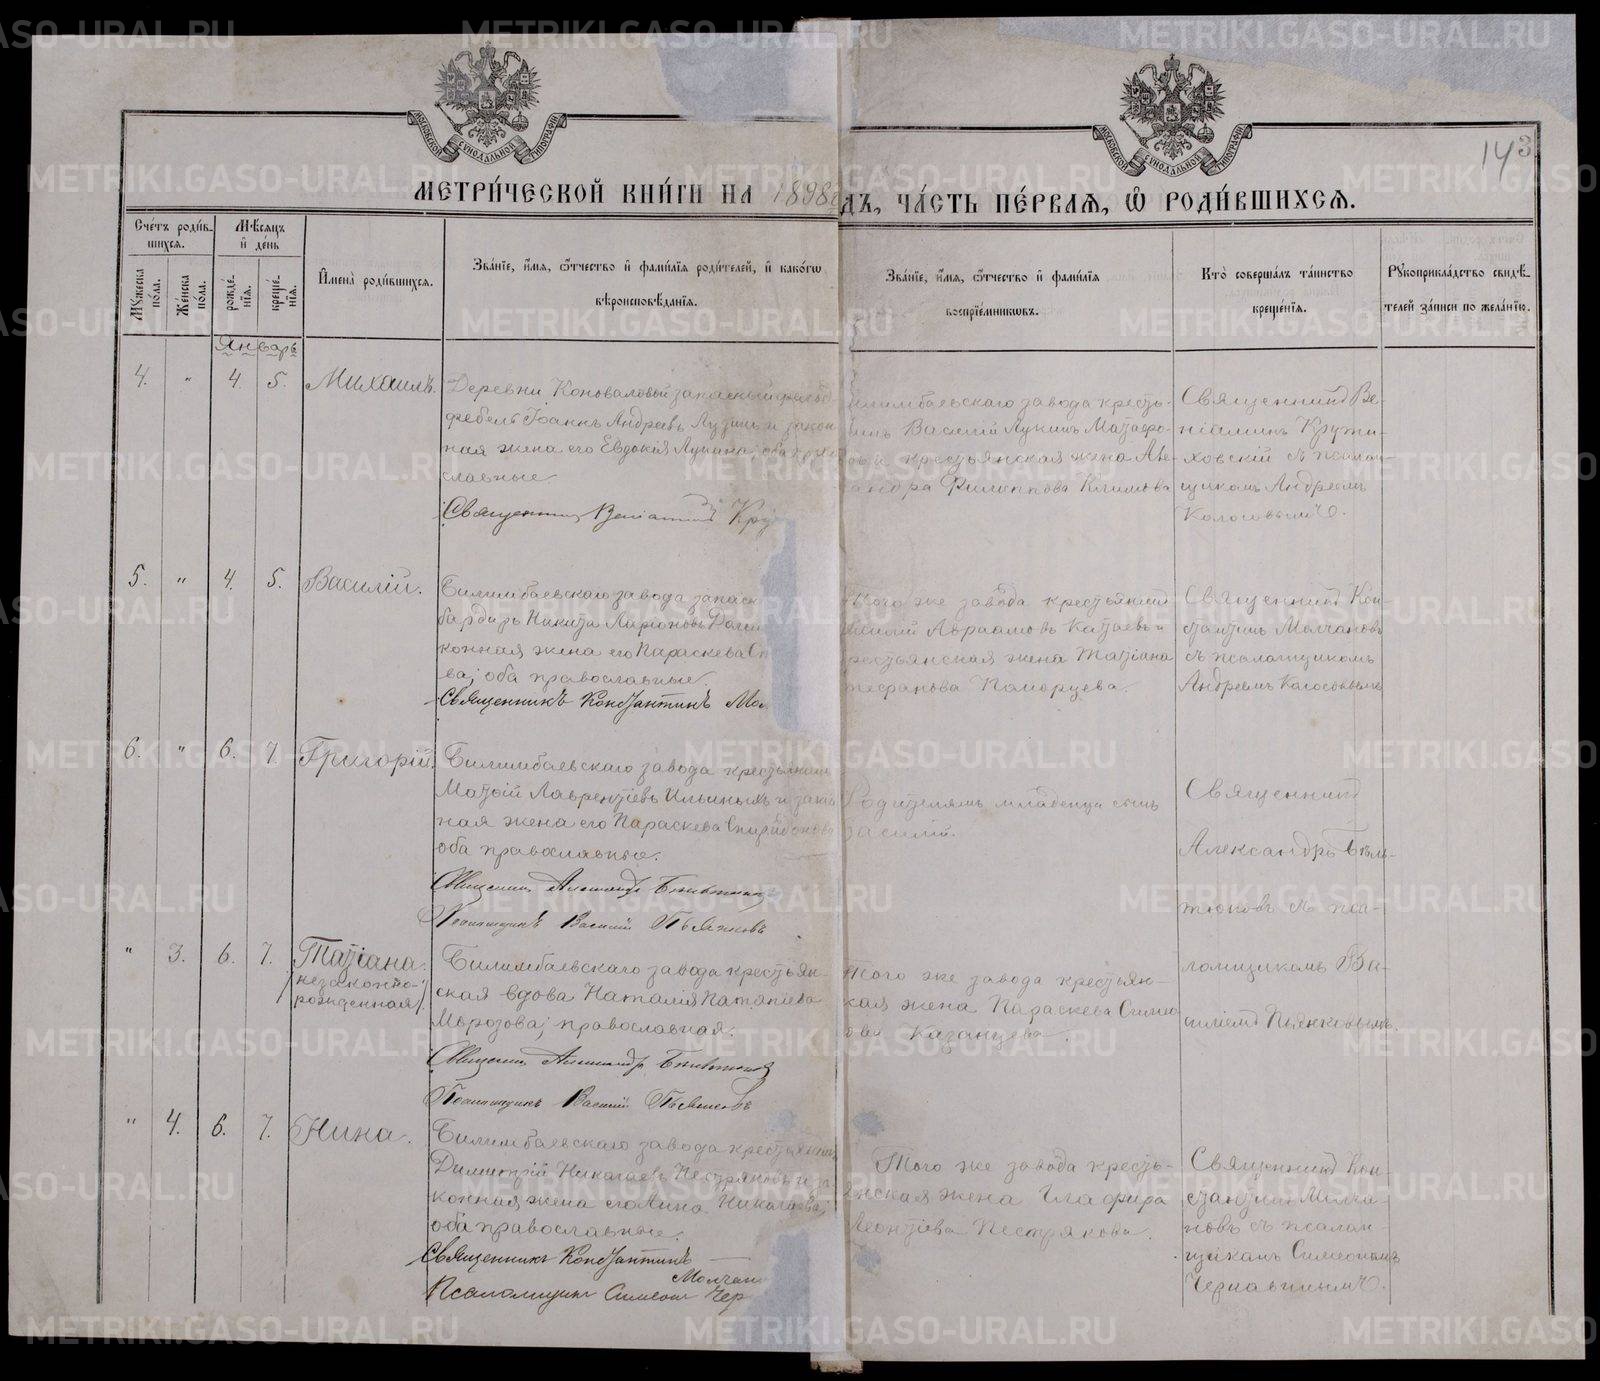 МОСКОВСКОЙ СУНОДАЛЬНОЙ ТИПОГРАФІИ
МОСКОВСКОЙ СУНОДАЛЬНОЙ ТИПОГРАФІИ
143
МЕТРИ́ЧЕСКОЙ КНИ́ГИ НА 1898 г
дъ, ЧА́СТЬ ПЕ́РВАѦ, Ѡ РОДИ́ВШИХСѦ.
Сче́тъ роди́в-
шихсѧ.
Мѣ́сѧцъ
и҆ де́нь
Мꙋ́жеска по́ла.
Же́нска по́ла.
рожде́-
нїѧ.
креще́-
нїѧ.
И҆мена̀ роди́вшихсѧ.
Зва́нїе, и҆́мѧ, ѻ҆́тчество и҆ фами́лїѧ роди́телей, и҆ како́гѡ
вѣроисповѣ́данїѧ.
Зва́нїе, и҆́мѧ, ѻ҆́тчество и҆ фами́лїѧ
воспрїе́мникѡвъ.
Кто̀ соверша́лъ та́инство
креще́нїѧ.
Рꙋкоприкла́дство свидѣ́-
телей за́писи по жела́нїю.
Январь
4. " 4. 5. Михаилъ.
Деревни Коноваловой запасный фельд
фебель Іоаннъ Андреевъ Лузинъ и закон
ная жена его Евдокія Лукина; оба право
славные
Священникъ Веніаминъ Кру
илимбаевскаго завода кресть-
инъ Василій Лукинъ Матафо-
овъ и крестьянская жена Але-
андра Филиппова Климова
Священникъ Ве-
ніаминъ Крути-
ховскій съ псалом-
щикомъ Андреемъ
Колосовымъ.
5. " 4. 5. Василій.
Билимбаевскаго завода запасн
бардиръ Никита Ларіоновъ
конная жена его Параскева
ва; оба православные.
Священникъ Константинъ Мол
Того же завода крестьянинъ
асилій Авраамовъ Катаевъ и
рестьянская жена Татіана
Поморцева.
Священникъ Кон-
стантинъ Молчановъ
съ псаломщикомъ
Андреемъ Колосовымъ
6. " 6. 7. Григорій.
Билимбаевскаго завода крестьянинъ
Матѳій Лаврентіевъ Ильиныхъ и закон
ная жена его Параскева Спиридонова
оба православные.
Священникъ Александръ Бѣльтюковъ
Псаломщикъ Василій Пьянковъ
Родителямъ младенца сынъ
Василій.
Священникъ
Александръ Бѣль-
тюковъ съ пса-
ломщикомъ Ва-
силіемъ Пьянковымъ.
" 3. 6. 7. Татіана.
(незаконно-
рожденная)
Билимбаевскаго завода крестьян-
ская вдова Наталія Потапіева
Морозова; православная.
Священникъ Александръ Бѣльтюковъ
Псаломщикъ Василій Пьянковъ
Того же завода крестьян-
ская жена Параскева Симео
ова Казанцева.
" 4. 6. 7. Нина.
Билимбаевскаго завода крестьянинъ
Димитрій Николаевъ Пестряковъ и за
конная жена его Анна Николаева;
оба православные.
Священникъ Константинъ
Молчан
Псаломщикъ Симеонъ Чер
Того же завода кресть-
янская жена Глафира
Леонтіева Пестрякова.
Священникъ Кон-
стантинъ Молча-
новъ съ псалом-
щикомъ Симеономъ
Чернавинымъ.
METRIKI.GASO-URAL.RU